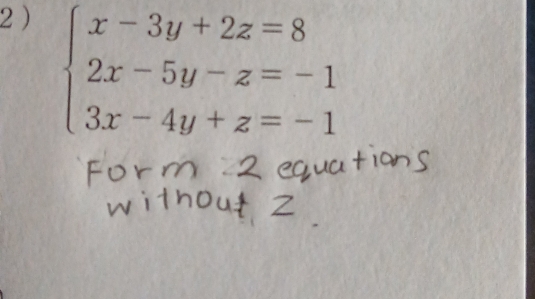 2) x − 3y + 2z = 8
2x − 5y − z = − 1
3x − 4y + z = − 1
Form 2 equations
without z.